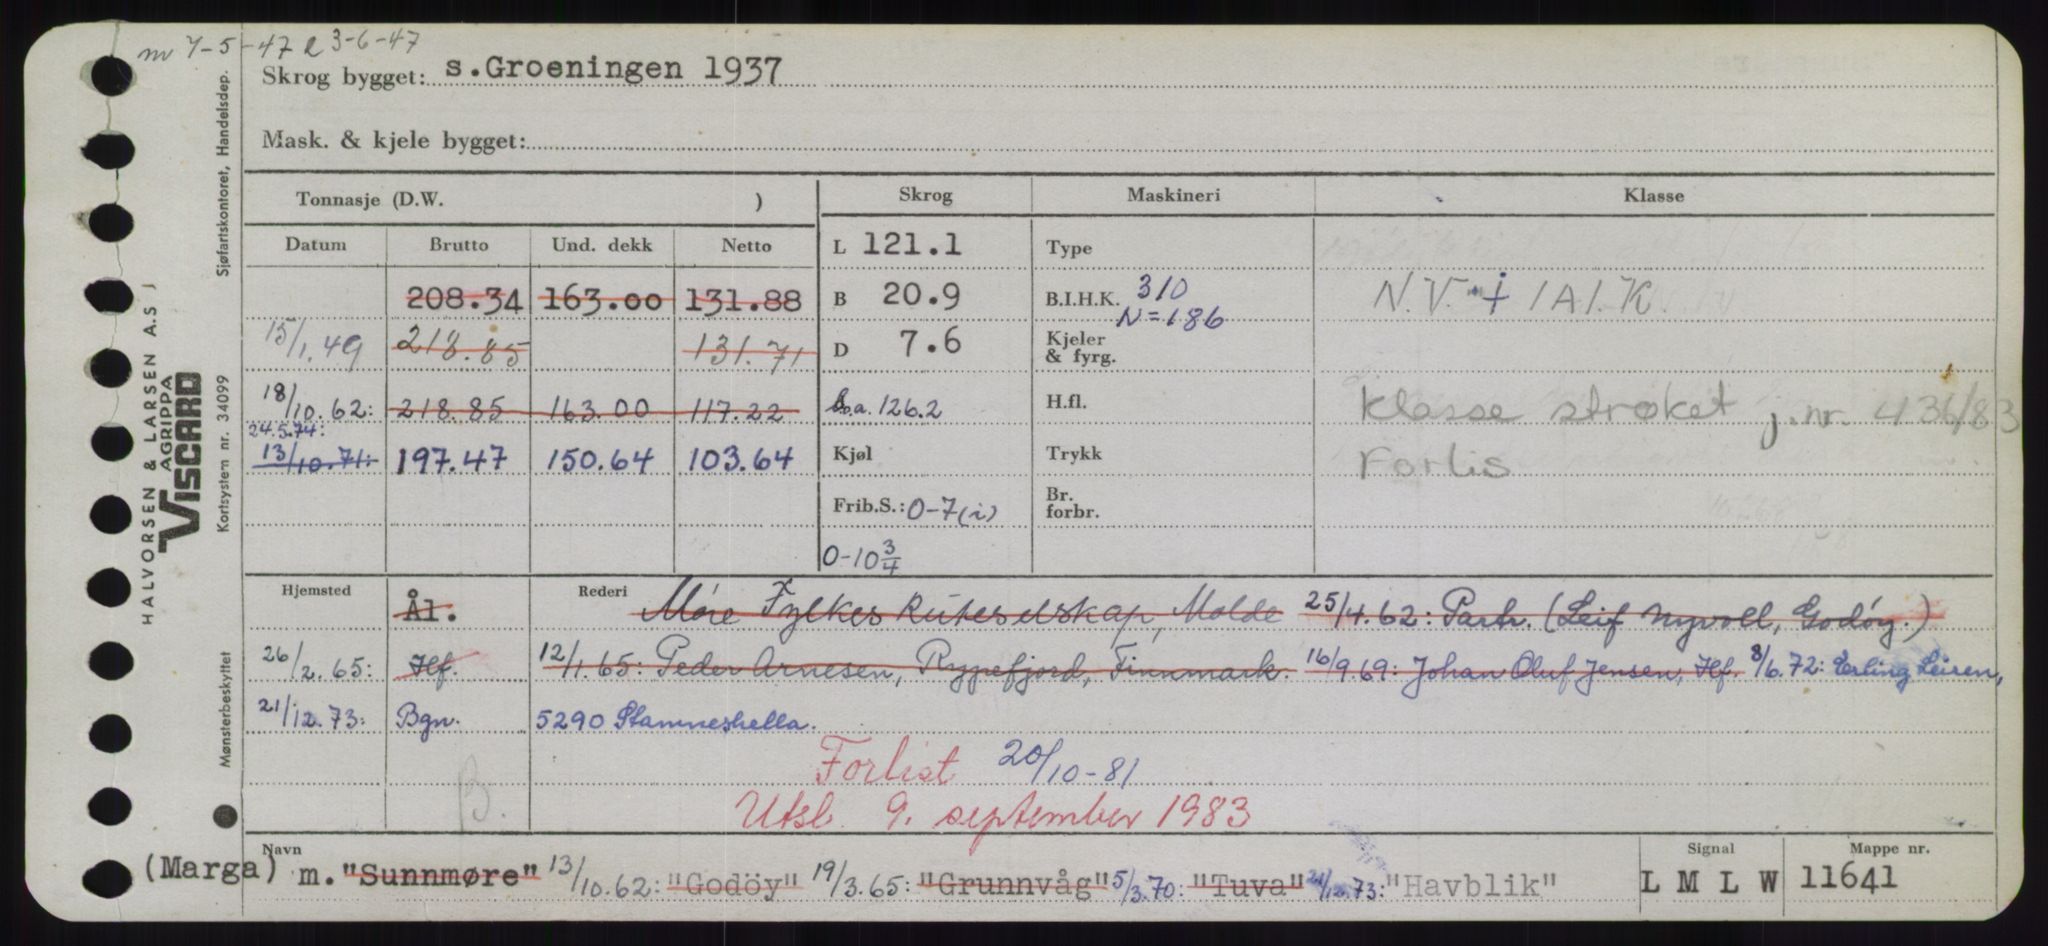 nv 7-5-47 R 3-6-47
Skrog bygget: s.Groeningen 1937
Mask. & kjele bygget:
Tonnasje (D.W. ) Skrog Maskineri Klasse
Datum Brutto Und. dekk Netto L 121.1 Type
208.34 163.00 131.88 B 20.9 B.I.H.K. 310 N.V. + 1A1.K.
N=186
15/1.49 218.85 131.71 D 7.6 Kjeler & fyrg.
18/10.62: 218.85 163.00 117.22 L.o.a. 126.2 H.fl. Klasse strøket j.nr. 436/83
24.5.74:
13/10.71: 197.47 150.64 103.64 Kjøl Trykk Forlis
Frib.S.: 0-7(i) Br. forbr.
0-10 3/4
Hjemsted Ål. Rederi Møre Fylkes Ruteselskap, Molde 25/4.62: Partr. (Leif Nyvoll, Godøy.)
26/2.65: Hf. 12/1.65: Peder Arnesen, Rypefjord, Finnmark. 16/9.69: Johan Oluf Jensen, Hf. 8/6.72: Erling Leiren,
21/12.73: Bgn. 5290 Stamneshella.
Forlist 20/10-81
B. Utsl. 9. september 1983
Navn Signal Mappe nr.
(Marga) m. "Sunnmøre" 13/10.62: "Godöy" 19/3.65: "Grunnvåg" 5/3.70: "Tuva" 21/12.73: "Havblik" L M L W 11641
HALVORSEN & LARSEN A.S
AGRIPPA
VISCARD
Sjøfartskontoret, Handelsdep.
Kortsystem nr. 34099
Mønsterbeskyttet